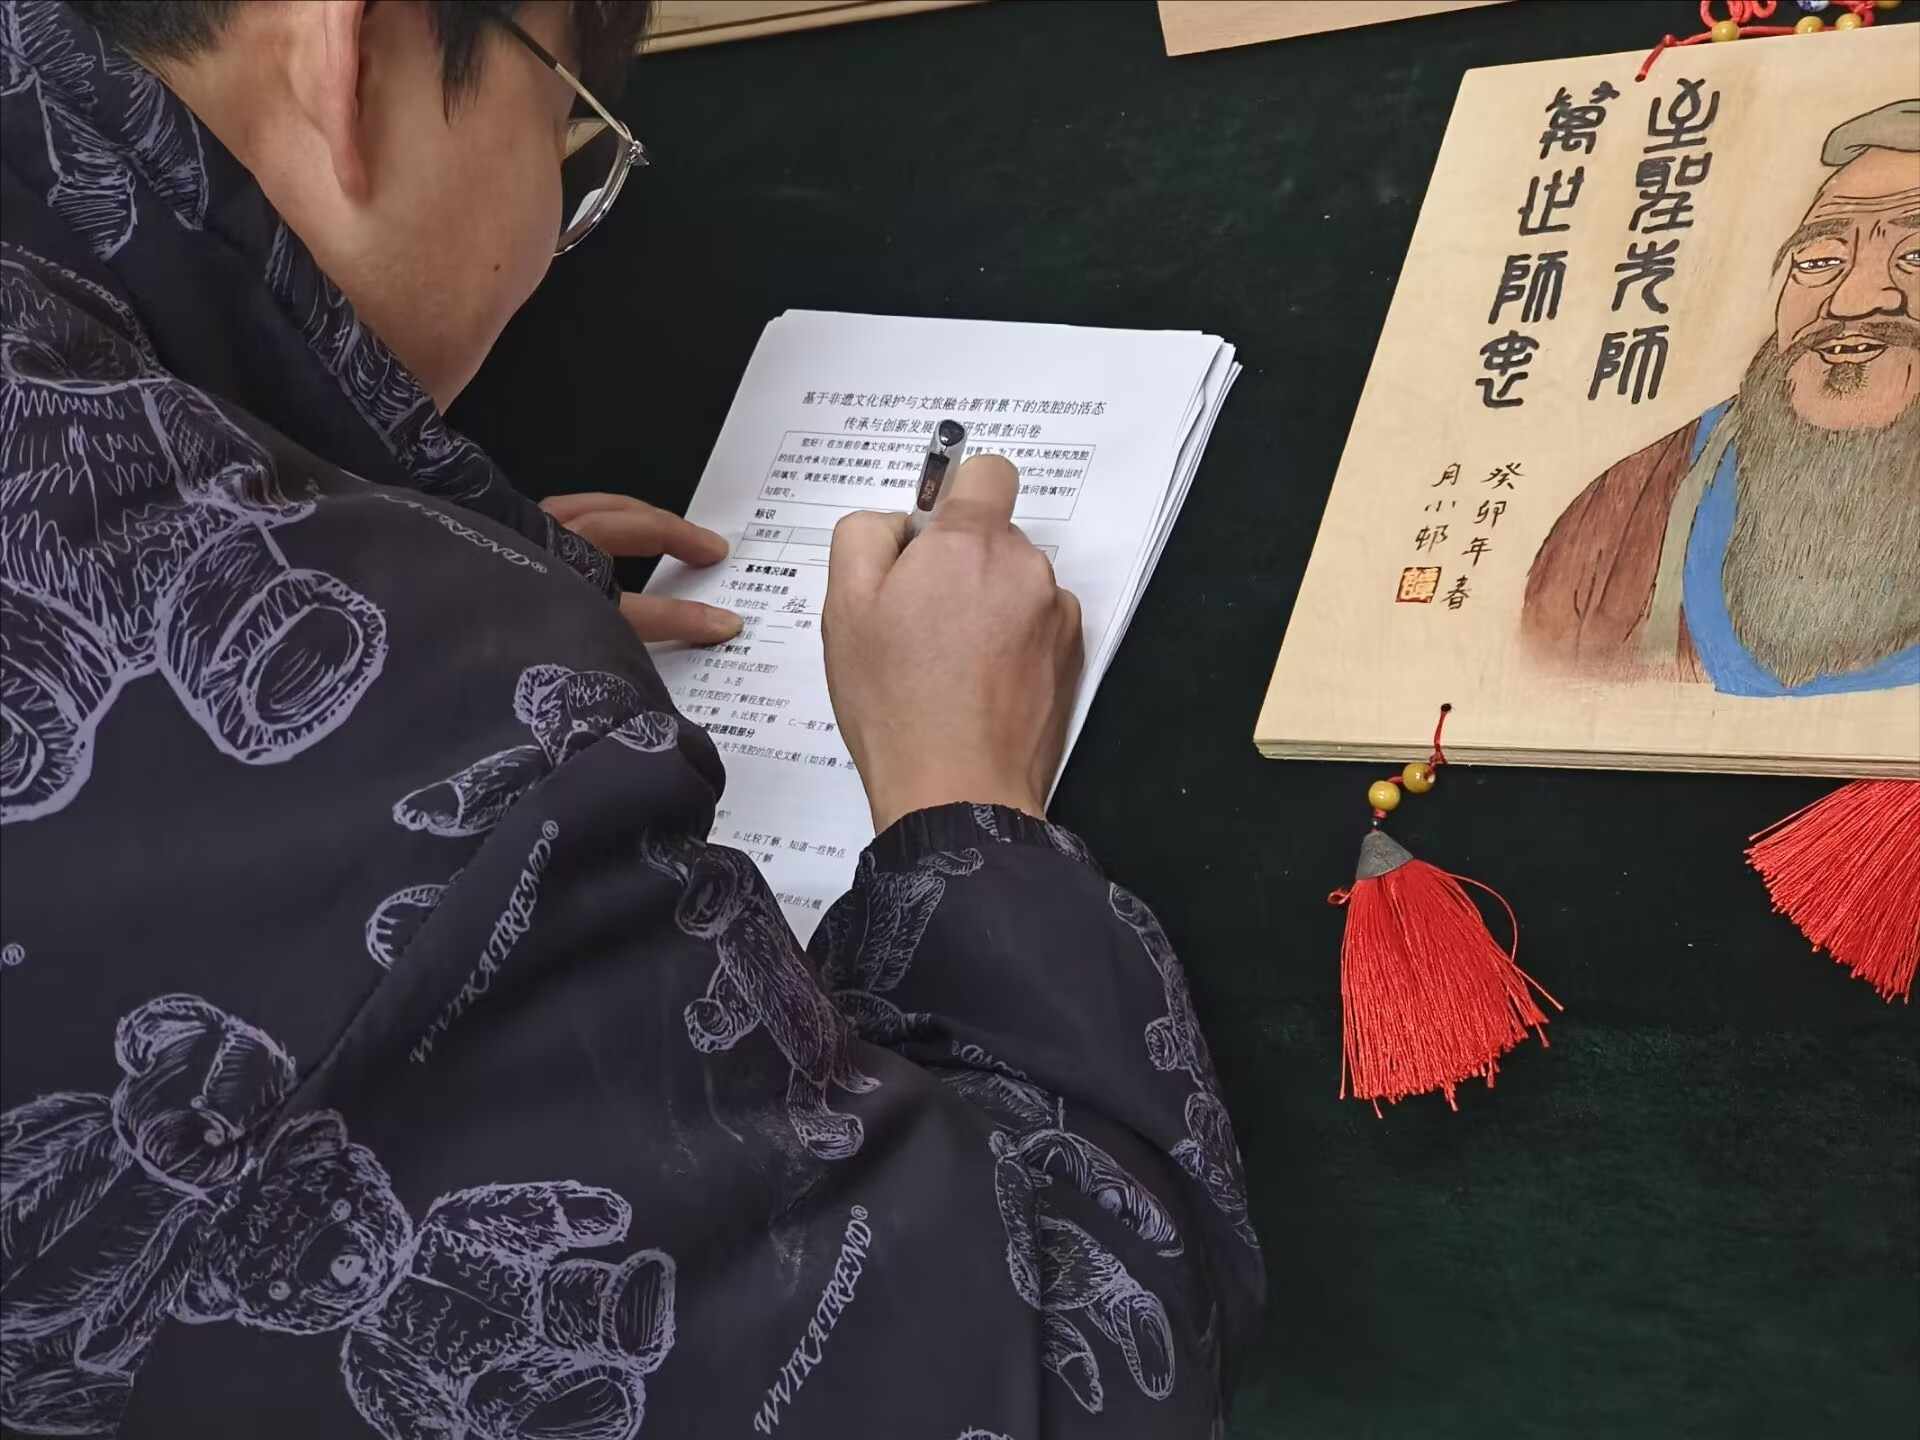 基于非遗文化保护与文旅融合新背景下的茂腔的活态
传承与创新发展 研究调查问卷
您好！在当前非遗文化保护与文旅 背景下，为了更深入地探究茂腔
的活态传承与创新发展路径，我们特此 百忙之中抽出时
间填写。调查采用匿名形式，请根据实 问卷填写打
勾即可。
标识
调查者
一、基本情况调查
1.受访者基本信息
(1) 您的住址
性别: 年龄
了解程度
(1) 您是否听说过茂腔?
A.是 B.否
(2) 您对茂腔的了解程度如何?
A.非常了解 B.比较了解 C.一般了解
基因提取部分
关于茂腔的历史文献（如古籍、地
B.比较了解，知道一些特点
不了解
能说出大概
至聖先師
萬世師表
癸卯年春
月小邨
WVIKATREND®
WVIKATREND®